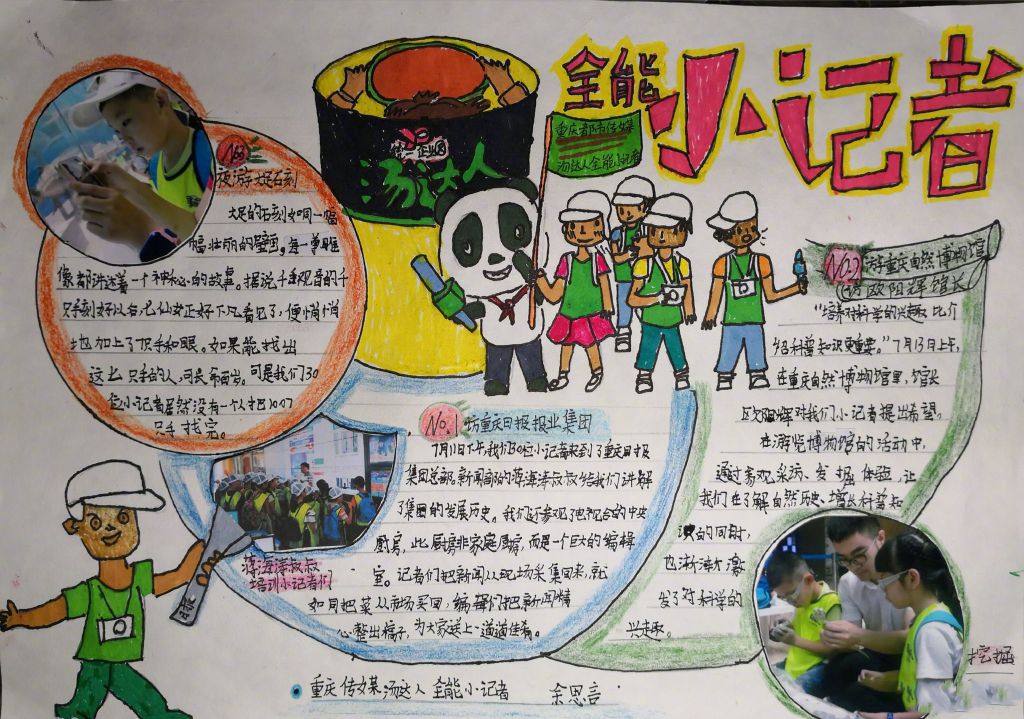 全能小记者
重庆都市传媒
汤达人全能小记者
统一企业
汤达人
No.3
夜游大足石刻
大足的石刻如同一幅
幅壮丽的壁画，每一尊雕
像都讲述着一个神秘的故事。据说千手观音的千
只手刻好以后，七仙女正好下凡看见了，便悄悄
地加上了7只手和眼。如果能找出
这七只手的人，可长命百岁。可是我们30
位小记者虽然没有一个人把1007
只手找完。
No.1 访重庆日报报业集团
7月11日下午，我们30位小记者来到了重庆日报
集团总部，新闻部的蒋海涛叔叔给我们讲解
了集团的发展历史。我们还参观了他视台的中央
厨房，此厨房非家庭厨房，而是一个巨大的编辑
室。记者们把新闻从现场采集回来，就
如同把菜从市场买回，编辑们把新闻精
心整出稿子，为大家送上一道道佳肴。
蒋海涛叔叔
培训小记者们
No.2 游重庆自然博物馆
访欧阳辉馆长
“培养对科学的兴趣比介
绍科普知识更重要。”7月13日上午，
在重庆自然博物馆里，馆长
欧阳辉对我们小记者提出希望。
在游览博物馆的活动中，
通过参观、采访、发掘体验，让
我们在了解自然历史、增长科普知
识的同时，
也渐渐激
发了对科学的
兴趣。
挖掘
重庆传媒汤达人全能小记者 余思言